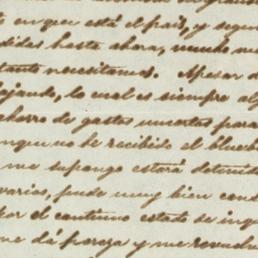 te en que está el país, y segun
didas hasta ahora, mucho me
tanto necesitamos. Apesar d
ajando, lo cual es siempre al
horro de gastos muertos para
unque no he recibido el blueb
me supongo estará detenido
varios, pude muy bien cons
por el continuo estado de inqu
me dá pereza y me revuelv